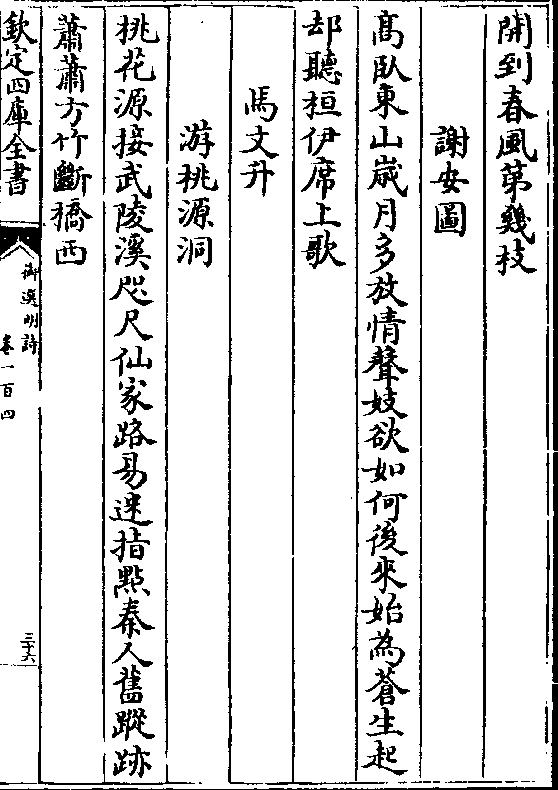 開到春風第幾枝
謝安圖
髙臥東山嵗月多放情聲妓欲如何後來始為蒼生起
却聽桓伊席上歌
馬文升
游桃源洞
桃花源接武陵溪咫尺仙家路易迷指點秦人舊蹤跡
蕭蕭方竹斷橋西
欽定四庫全書
御選明詩
卷一百四
三十六